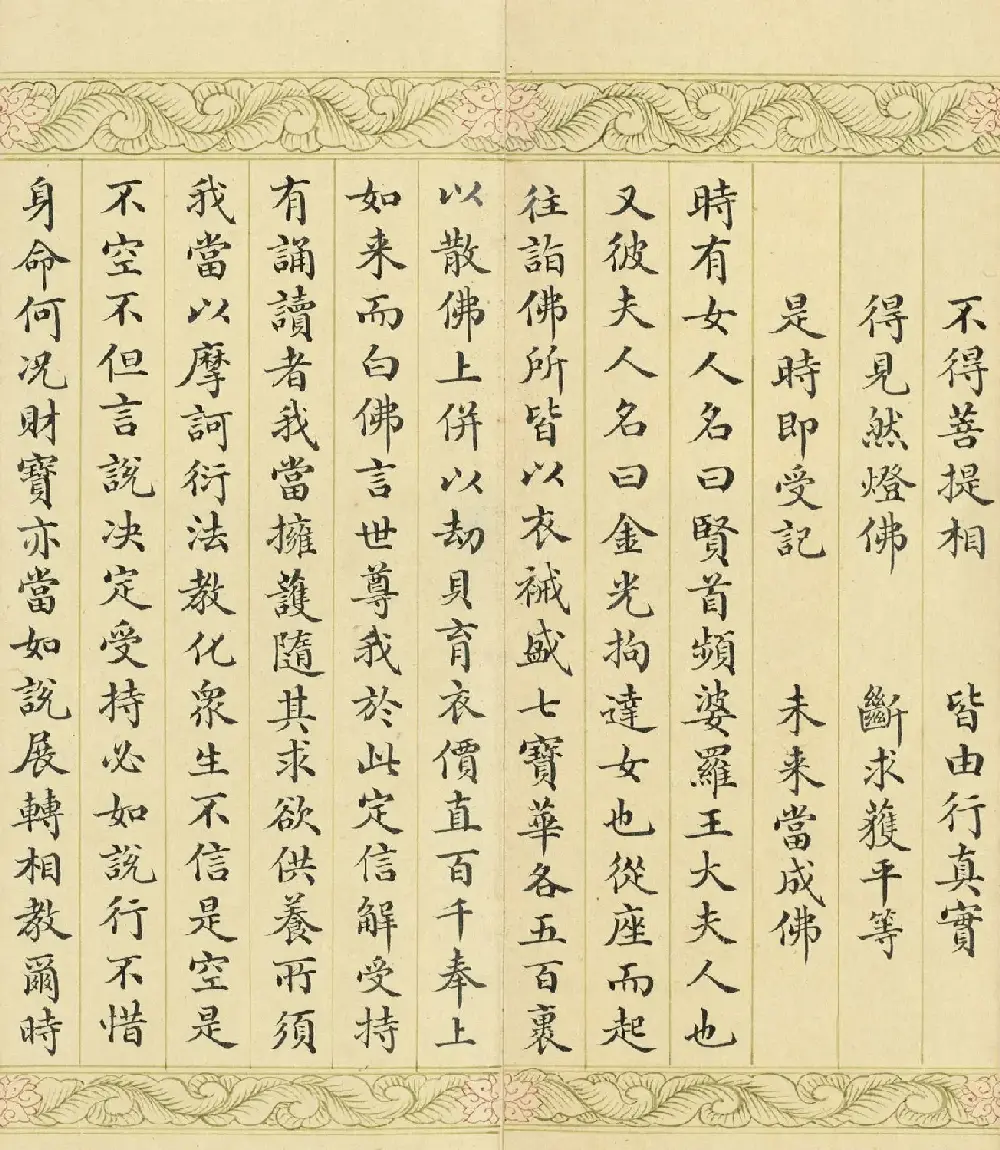 不得菩提相　皆由行真實
得見然燈佛　斷求獲平等
是時即受記　未来當成佛
時有女人名曰賢首頻婆羅王大夫人也
又彼夫人名曰金光拘達女也從座而起
往詣佛所皆以衣裓盛七寶華各五百裹
以散佛上併以劫貝育衣價直百千奉上
如来而白佛言世尊我於此定信解受持
有誦讀者我當擁護隨其求欲供養所須
我當以摩訶衍法教化衆生不信是空是
不空不但言說決定受持必如說行不惜
身命何況財寶亦當如說展轉相教爾時